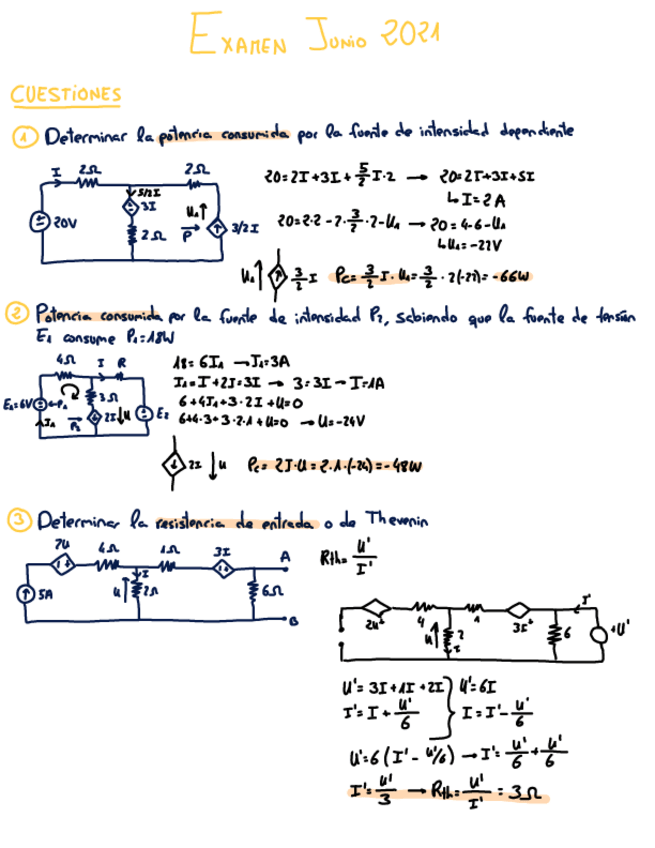 EXAMEN JUNIO 2021
CUESTIONES
1 Determinar la potencia consumida por la fuente de intensidad dependiente
I 2Ω 2Ω
5/2 I
3I
20V
2Ω
U₁↑
P
3/2 I
20=2I+3I+5/2 I·2 → 20=2I+3I+5I
↳ I=2A
20=2·2-2·3/2·2-U₁ → 20=4-6-U₁
↳ U₁=-22V
U₁↑ 3/2 I Pc=3/2 I·U₁=3/2·2(-22)=-66W
2 Potencia consumida por la fuente de intensidad P₂, sabiendo que la fuente de tensión
E₁ consume P₁=18W
4Ω I R
3Ω
E₁=6V ←P₁
I₁ P₂ 2I ↓U E₂
18=6I₁ →I₁=3A
I₁=I+2I=3I → 3=3I→I=1A
6+4I₁+3·2I+U=0
6+4·3+3·2·1+U=0 →U=-24V
2I ↓U Pc=2I·U=2·1·(-24)=-48W
3 Determinar la resistencia de entrada o de Thevenin
2U 4Ω 1Ω 3I A
5A U↑ I 2Ω 6Ω
B
Rth=U'/I'
2U 4 1 3I 6 I' +U'
U↑ 2
I
U'=3I+1I+2I U'=6I
I'=I+U'/6 I=I'-U'/6
U'=6(I'-U'/6) →I'=U'/6+U'/6
I'=U'/3 →Rth=U'/I'=3Ω